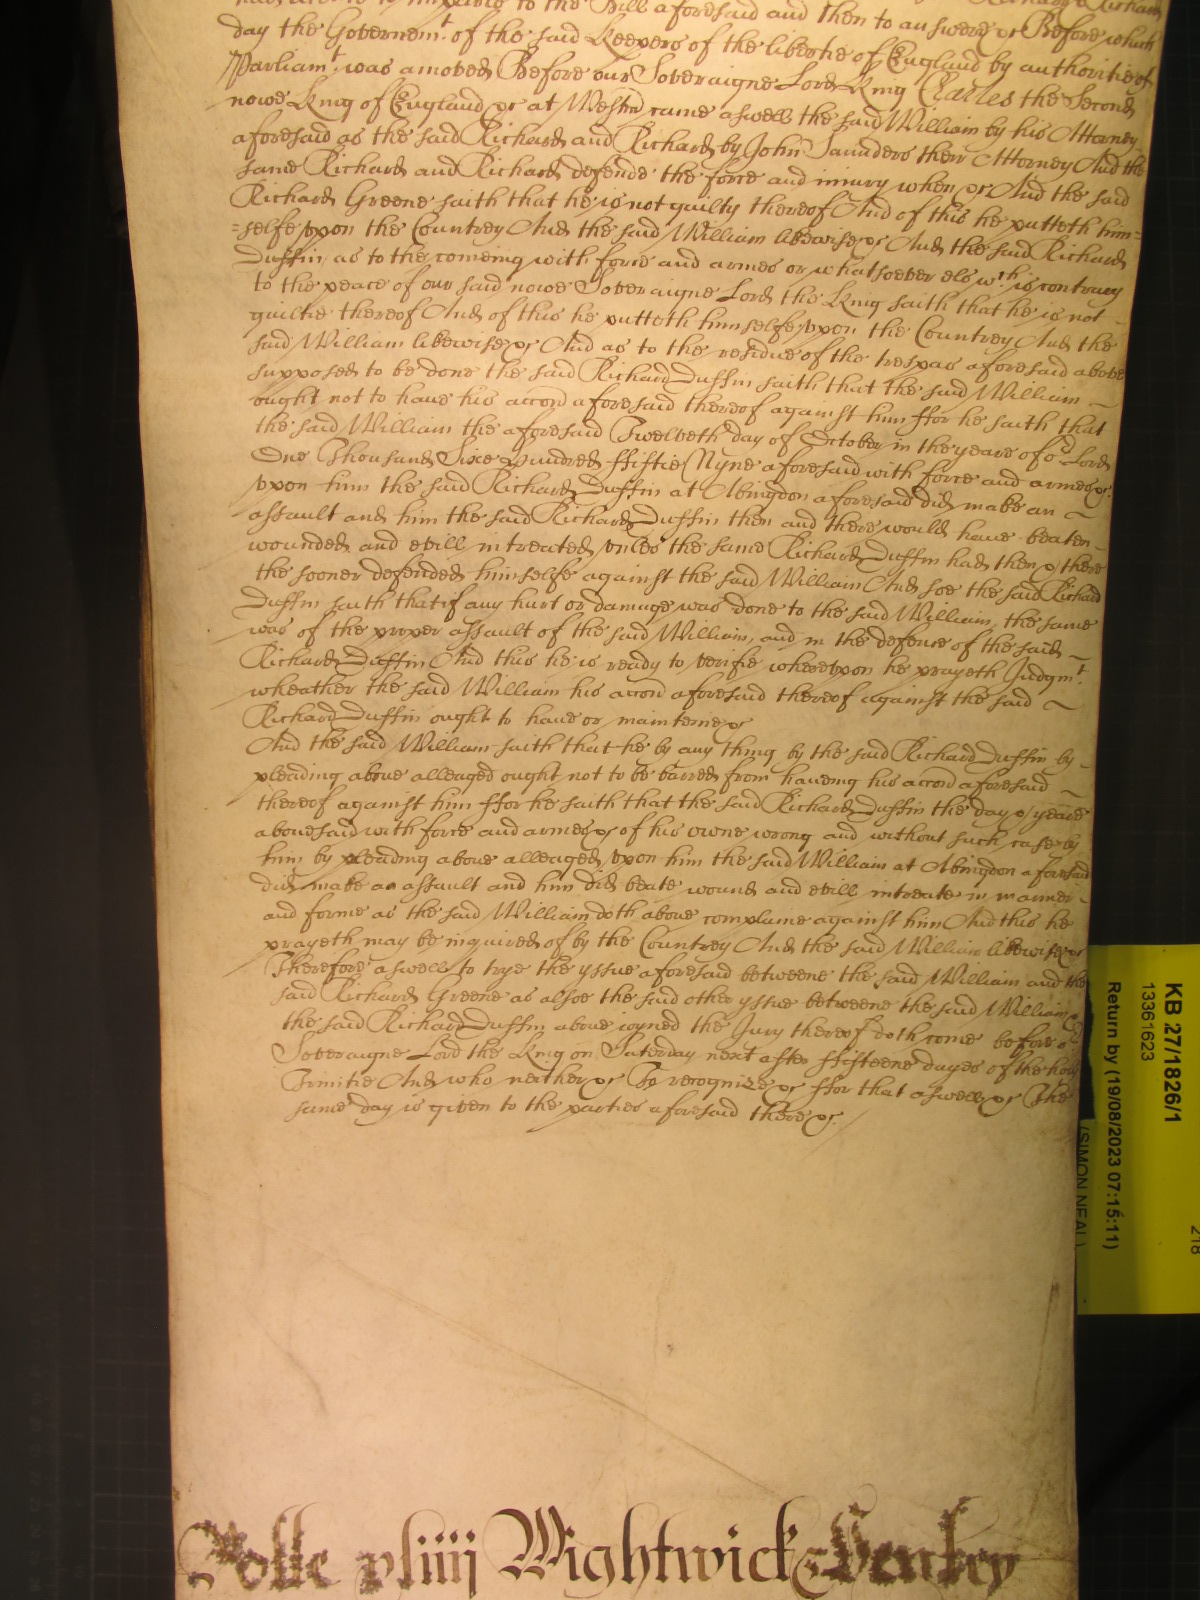 to the Bill aforesaid and then to answere &c Before which
day the Governem.t of the said Keepers of the libertie of England by authoritie of
Parliam.t was amoved Before our Soveraigne Lord King Charles the Second
nowe King of England &c at Westm̄ came aswell the said William by his Attorney
aforesaid as the said Richard and Richard by John Saunders their Attorney And the
same Richard and Richard defende the force and iniury when &c And the said
Richard Greene saith that he is not guilty thereof And of this he putteth him=
=selfe vpon the Countrey And the said William likewise &c And the said Richard
Duffin as to the comeing with force and armes or whatsoever els w.ch is contrary
to the peace of our said nowe Soveraigne Lord the King saith that he is not
guiltie thereof And of this he putteth himselfe vpon the Countrey And the
said William likewise &c And as to the residue of the trespas aforesaid above
supposed to be done the said Richard Duffin saith that the said William
ought not to haue his accon̄ aforesaid thereof against him ffor he saith that
the said William the aforesaid Twelveth day of October in the yeare of o.r Lord
One Thousand Sixe Hundred ffiftie Nyne aforesaid with force and armes &c
vpon him the said Richard Duffin at Abingdon aforesaid did make an
assault and him the said Richard Duffin then and there would haue beaten
wounded and evill intreated vnles the same Richard Duffin had then & there
the sooner defended himselfe against the said William And soe the said Richard
Duffin saith that if any hurt or damage was done to the said William, the same
was of the proper assault of the said William, and in the defence of the said
Richard Duffin And this he is ready to verifie wherevpon he prayeth Judgm.t
wheather the said William his accon̄ aforesaid thereof against the said
Richard Duffin ought to haue or mainteine &c
And the said William saith that he by any thing by the said Richard Duffin by
pleading above alleaged ought not to be barred from haueing his accon̄ aforesaid
thereof against him ffor he saith that the said Richard Duffin the day & yeare
abovesaid with force and armes &c of his owne wrong and without such case by
him by pleading above alleaged vpon him the said William at Abingdon aforesaid
did make an assault and him did beate wound and evill intreate in manner
and forme as the said William doth above complaine against him And this he
prayeth may be inquired of by the Countrey And the said William likewise &c
Therefore aswell to trye the yssue aforesaid betweene the said William and the
said Richard Greene as alsoe the said other yssue betweene the said William &
the said Richard Duffin above ioyned the Jury thereof doth come before o.r
Soveraigne Lord the King on Saturday next after ffifteene dayes of the holy
Trinitie And who neither &c To recognize &c ffor that aswell &c The
same day is given to the parties aforesaid there &c
Rolle xliiij Wightwick & Henley
KB 27/1826/1
13361623
Return by (19/08/2023 07:15:11)
(SIMON NEAL)
218